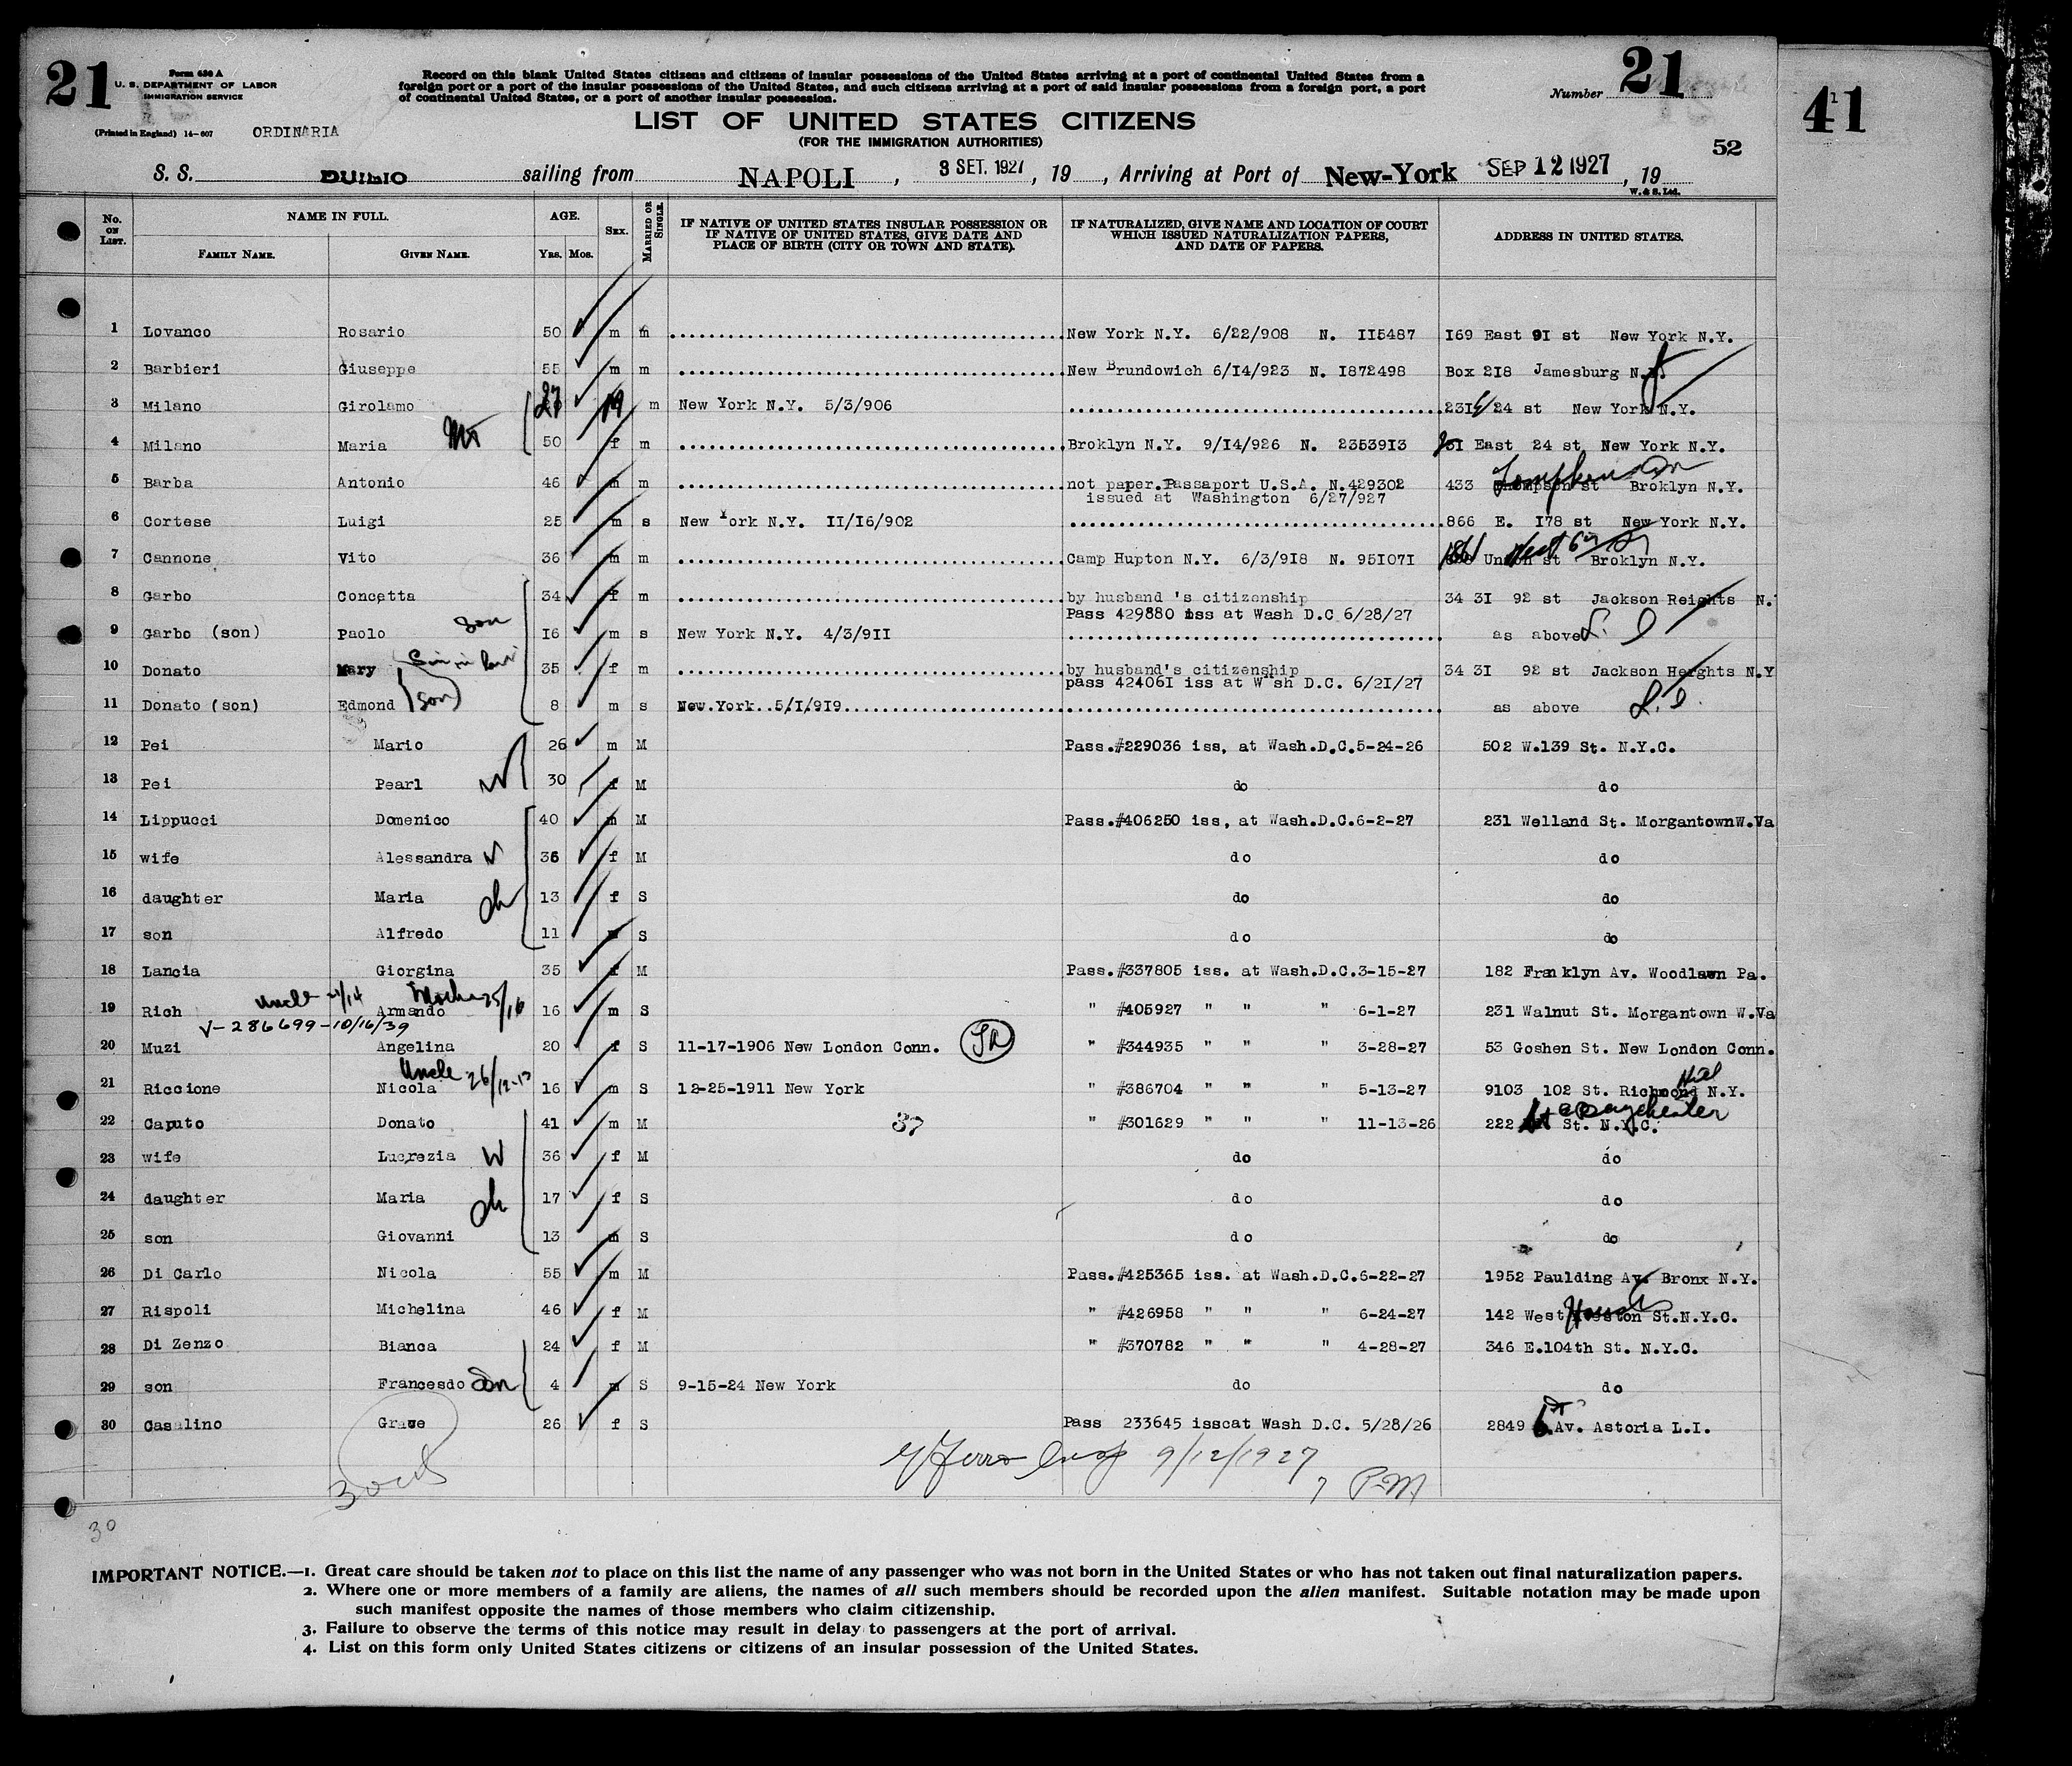 21
Form 630 A
U. S. DEPARTMENT OF LABOR
IMMIGRATION SERVICE
(Printed in England) 14-607
ORDINARIA
Record on this blank United States citizens and citizens of insular possessions of the United States arriving at a port of continental United States from a
foreign port or a port of the insular possessions of the United States, and such citizens arriving at a port of said insular possessions from a foreign port, a port
of continental United States, or a port of another insular possession.
Number 21
41
LIST OF UNITED STATES CITIZENS
(FOR THE IMMIGRATION AUTHORITIES)
52
S. S. DUILIO sailing from NAPOLI, 3 SET. 1927, 19 , Arriving at Port of New-York SEP 12 1927, 19
W. & S. Ltd.
No. ON LIST. NAME IN FULL. FAMILY NAME. GIVEN NAME. AGE. YRS. MOS. SEX. MARRIED OR SINGLE.
IF NATIVE OF UNITED STATES INSULAR POSSESSION OR
IF NATIVE OF UNITED STATES, GIVE DATE AND
PLACE OF BIRTH (CITY OR TOWN AND STATE).
IF NATURALIZED, GIVE NAME AND LOCATION OF COURT
WHICH ISSUED NATURALIZATION PAPERS,
AND DATE OF PAPERS.
ADDRESS IN UNITED STATES.
1 Lovanco Rosario 50 m m New York N.Y. 6/22/908 N. II5487 I69 East 9I st New York N.Y.
2 Barbieri Giuseppe 55 m m New Brundowich 6/I4/923 N. I872498 Box 2I8 Jamesburg N.
3 Milano Girolamo 21 m New York N.Y. 5/3/906 23I 24 st New York N.Y.
4 Milano Maria 50 f m Broklyn N.Y. 9/I4/926 N. 23539I3 East 24 st New York N.Y.
5 Barba Antonio 46 m m not paper.Passaport U.S.A. N.429302 433 st Broklyn N.Y.
issued at Washington 6/27/927
6 Cortese Luigi 25 m s New York N.Y. II/I6/902 866 E. I78 st New York N.Y.
7 Cannone Vito 36 m m Camp Hupton N.Y. 6/3/9I8 N. 95I07I Union st Broklyn N.Y.
8 Garbo Concetta 34 f m by husband 's citizenship 34 3I 92 st Jackson Reights N.
Pass 429880 iss at Wash D.C 6/28/27
9 Garbo (son) Paolo son I6 m s New York N.Y. 4/3/9II as above L. I
10 Donato Mary 35 f m by husband's citizenship 34 3I 92 st Jackson Heights N.Y
pass 42406I iss at Wash D.C. 6/2I/27
11 Donato (son) Edmond (son) 8 m s New.York..5/I/9I9 as above L.I.
12 Pei Mario 26 m M Pass.#229036 iss, at Wash.D.C.5-24-26 502 W.139 St. N.Y.C.
13 Pei Pearl W 30 f M do do
14 Lippucci Domenico 40 m M Pass.#406250 iss, at Wash.D.C.6-2-27 231 Welland St. MorgantownW.Va
15 wife Alessandra W 36 f M do do
16 daughter Maria ch 13 f S do do
17 son Alfredo 11 m S do do
18 Lancia Giorgina 35 f M Pass.#337805 iss. at Wash.D.C.3-15-27 182 Franklyn Av. Woodlawn Pa.
uncle
19 Rich Armando 16 m S " #405927 " " " 6-1-27 231 Walnut St. Morgantown W.Va
V-286699-10/16/39
20 Muzi Angelina 20 f S 11-17-1906 New London Conn. " #344935 " " " 3-28-27 53 Goshen St. New London Conn.
Uncle
21 Riccione Nicola 16 m S 12-25-1911 New York " #386704 " " " 5-13-27 9103 102 St. Richmond Hill N.Y.
22 Caputo Donato 41 m M 37 " #301629 " " " 11-13-26 222 St. N.Y.C.
23 wife Lucrezia W 36 f M do do
24 daughter Maria ch 17 f S do do
25 son Giovanni 13 m S do do
26 Di Carlo Nicola 55 m M Pass.#425365 iss. at Wash.D.C.6-22-27 1952 Paulding Av. Bronx N.Y.
27 Rispoli Michelina 46 f M " #426958 " " " 6-24-27 142 West St.N.Y.C.
28 Di Zenzo Bianca 24 f M " #370782 " " " 4-28-27 346 E.104th St. N.Y.C.
29 son Francesdo Son 4 m S 9-15-24 New York do do
30 Casalino Grace 26 f S Pass 233645 isscat Wash D.C. 5/28/26 2849 Av. Astoria L.I.
9/12/1927
7 P.M
30
IMPORTANT NOTICE.—1. Great care should be taken not to place on this list the name of any passenger who was not born in the United States or who has not taken out final naturalization papers.
2. Where one or more members of a family are aliens, the names of all such members should be recorded upon the alien manifest. Suitable notation may be made upon
such manifest opposite the names of those members who claim citizenship.
3. Failure to observe the terms of this notice may result in delay to passengers at the port of arrival.
4. List on this form only United States citizens or citizens of an insular possession of the United States.